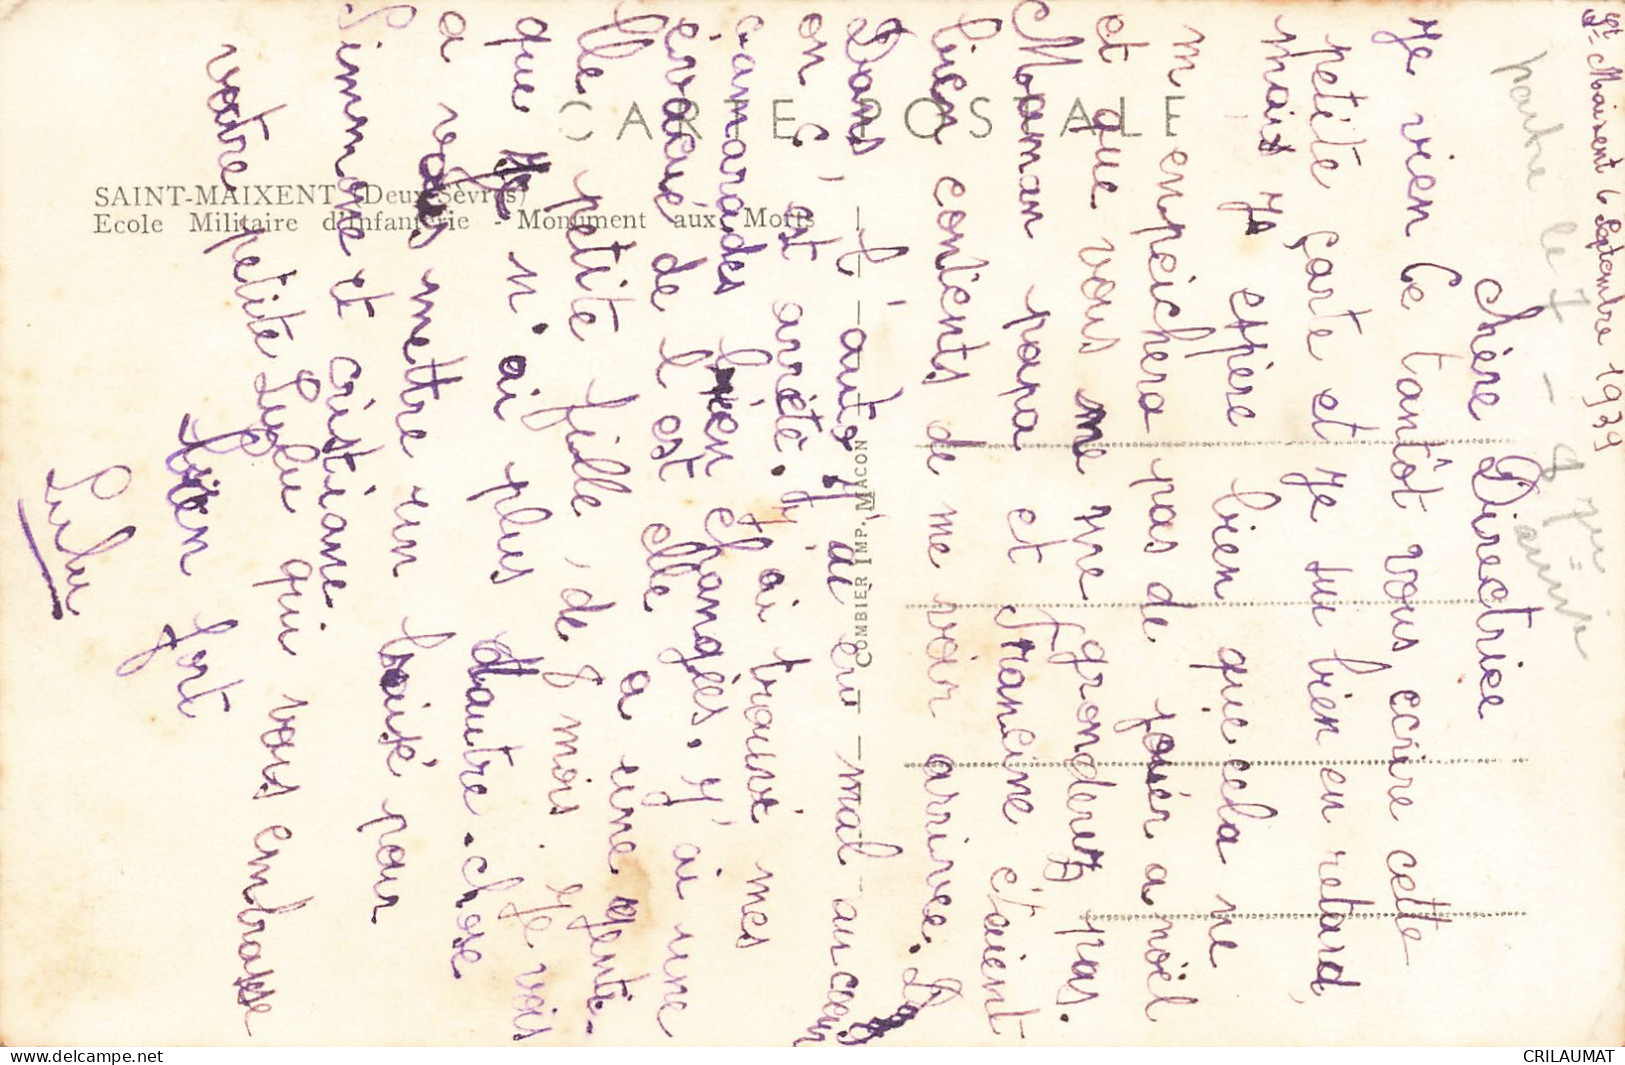 CARTE POSTALE
SAINT-MAIXENT (Deux-Sèvres)
Ecole Militaire d'Infanterie - Monument aux Morts
COMBIER IMP. MACON
St-Maixent 6 Septembre 1939
le 7 - 8
Chère Directrice
je vien ce tantôt vous ecrire cette
petite çarte et je sui bien en retard,
mais je espère bien que cela ne
m'enpeichera pas de jouér a nöel
et que vous me me gronderez pas.
Maman papa et Francine c'taient
bien contients de me voir arrivee.
Dans l'auto j'ai eu mal au coeur
on s'est arèté. J'ai trouvé mes
camarades bien changées. J'ai une
evacué de l'est elle a une gentie-
lle petite fille, de 8 mois je vois
que je n'ai plus d'autre chose
a vous mettre un baisé pour
Simmone et cristiane.
votre petite Lulu qui vous embrasse
bien fort
Lulu
CRILAUMAT